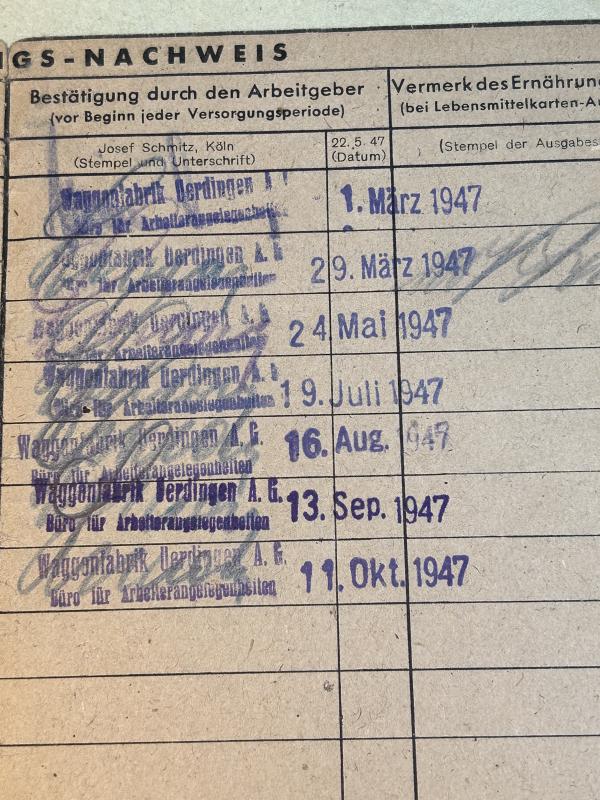 GS-NACHWEIS
Bestätigung durch den Arbeitgeber
(vor Beginn jeder Versorgungsperiode)
Vermerk des Ernähru
(bei Lebensmittelkarten-Au
Josef Schmitz, Köln
(Stempel und Unterschrift)
22. 5. 47
(Datum)
(Stempel der Ausgabes
Waggonfabrik Uerdingen A. G.
Büro für Arbeiterangelegenheiten
1. März 1947
Waggonfabrik Uerdingen A. G.
Büro für Arbeiterangelegenheiten
29. März 1947
Waggonfabrik Uerdingen A. G.
Büro für Arbeiterangelegenheiten
24. Mai 1947
Waggonfabrik Uerdingen A. G.
Büro für Arbeiterangelegenheiten
19. Juli 1947
Waggonfabrik Uerdingen A. G.
Büro für Arbeiterangelegenheiten
16. Aug. 1947
Waggonfabrik Uerdingen A. G.
Büro für Arbeiterangelegenheiten
13. Sep. 1947
Waggonfabrik Uerdingen A. G.
Büro für Arbeiterangelegenheiten
11. Okt. 1947